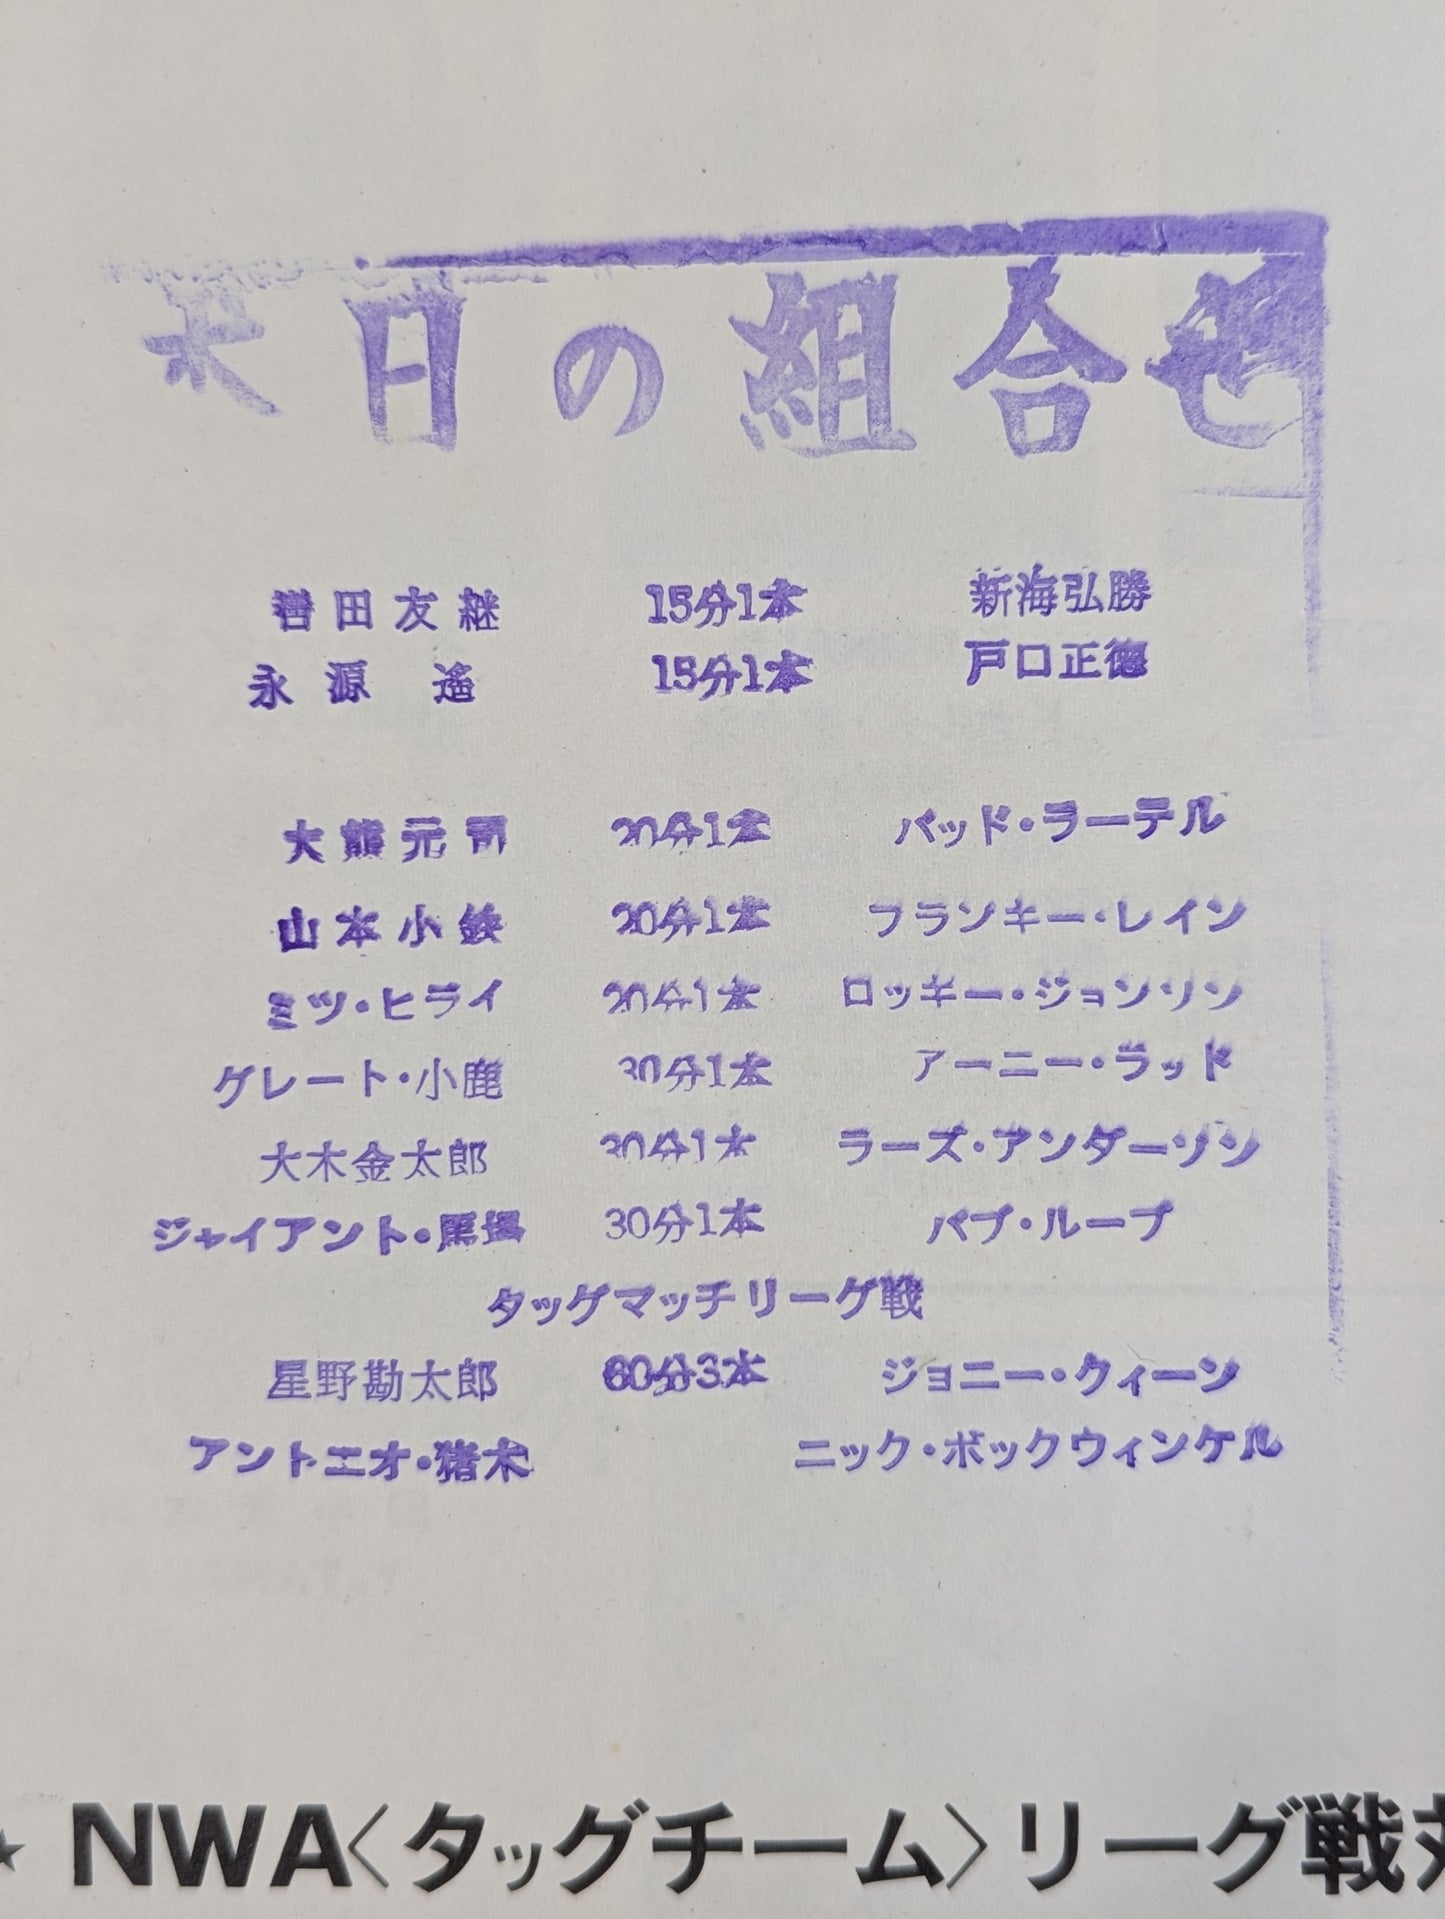 本日の組合せ
轡田友継 15分1本 新海弘勝
永源遙 15分1本 戸口正徳
大熊元司 20分1本 バッド・ラーテル
山本小鉄 20分1本 フランキー・レイン
ミツ・ヒライ 20分1本 ロッキー・ジョンソン
グレート・小鹿 30分1本 アーニー・ラッド
大木金太郎 30分1本 ラーズ・アンダーソン
ジャイアント・馬場 30分1本 バブ・ループ
タッグマッチリーグ戦
星野勘太郎 60分3本 ジョニー・クィーン
アントニオ・猪木 ニック・ボックウィンケル
★ NWA〈タッグチーム〉リーグ戦